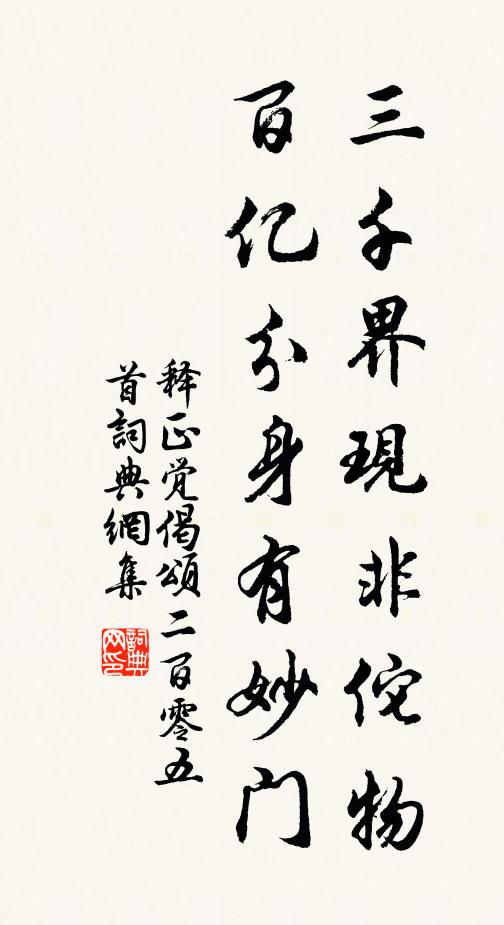 三千界現非侘物
百亿分身有妙门
释正觉偈頌二百零五
首詞典網集
詞典网印